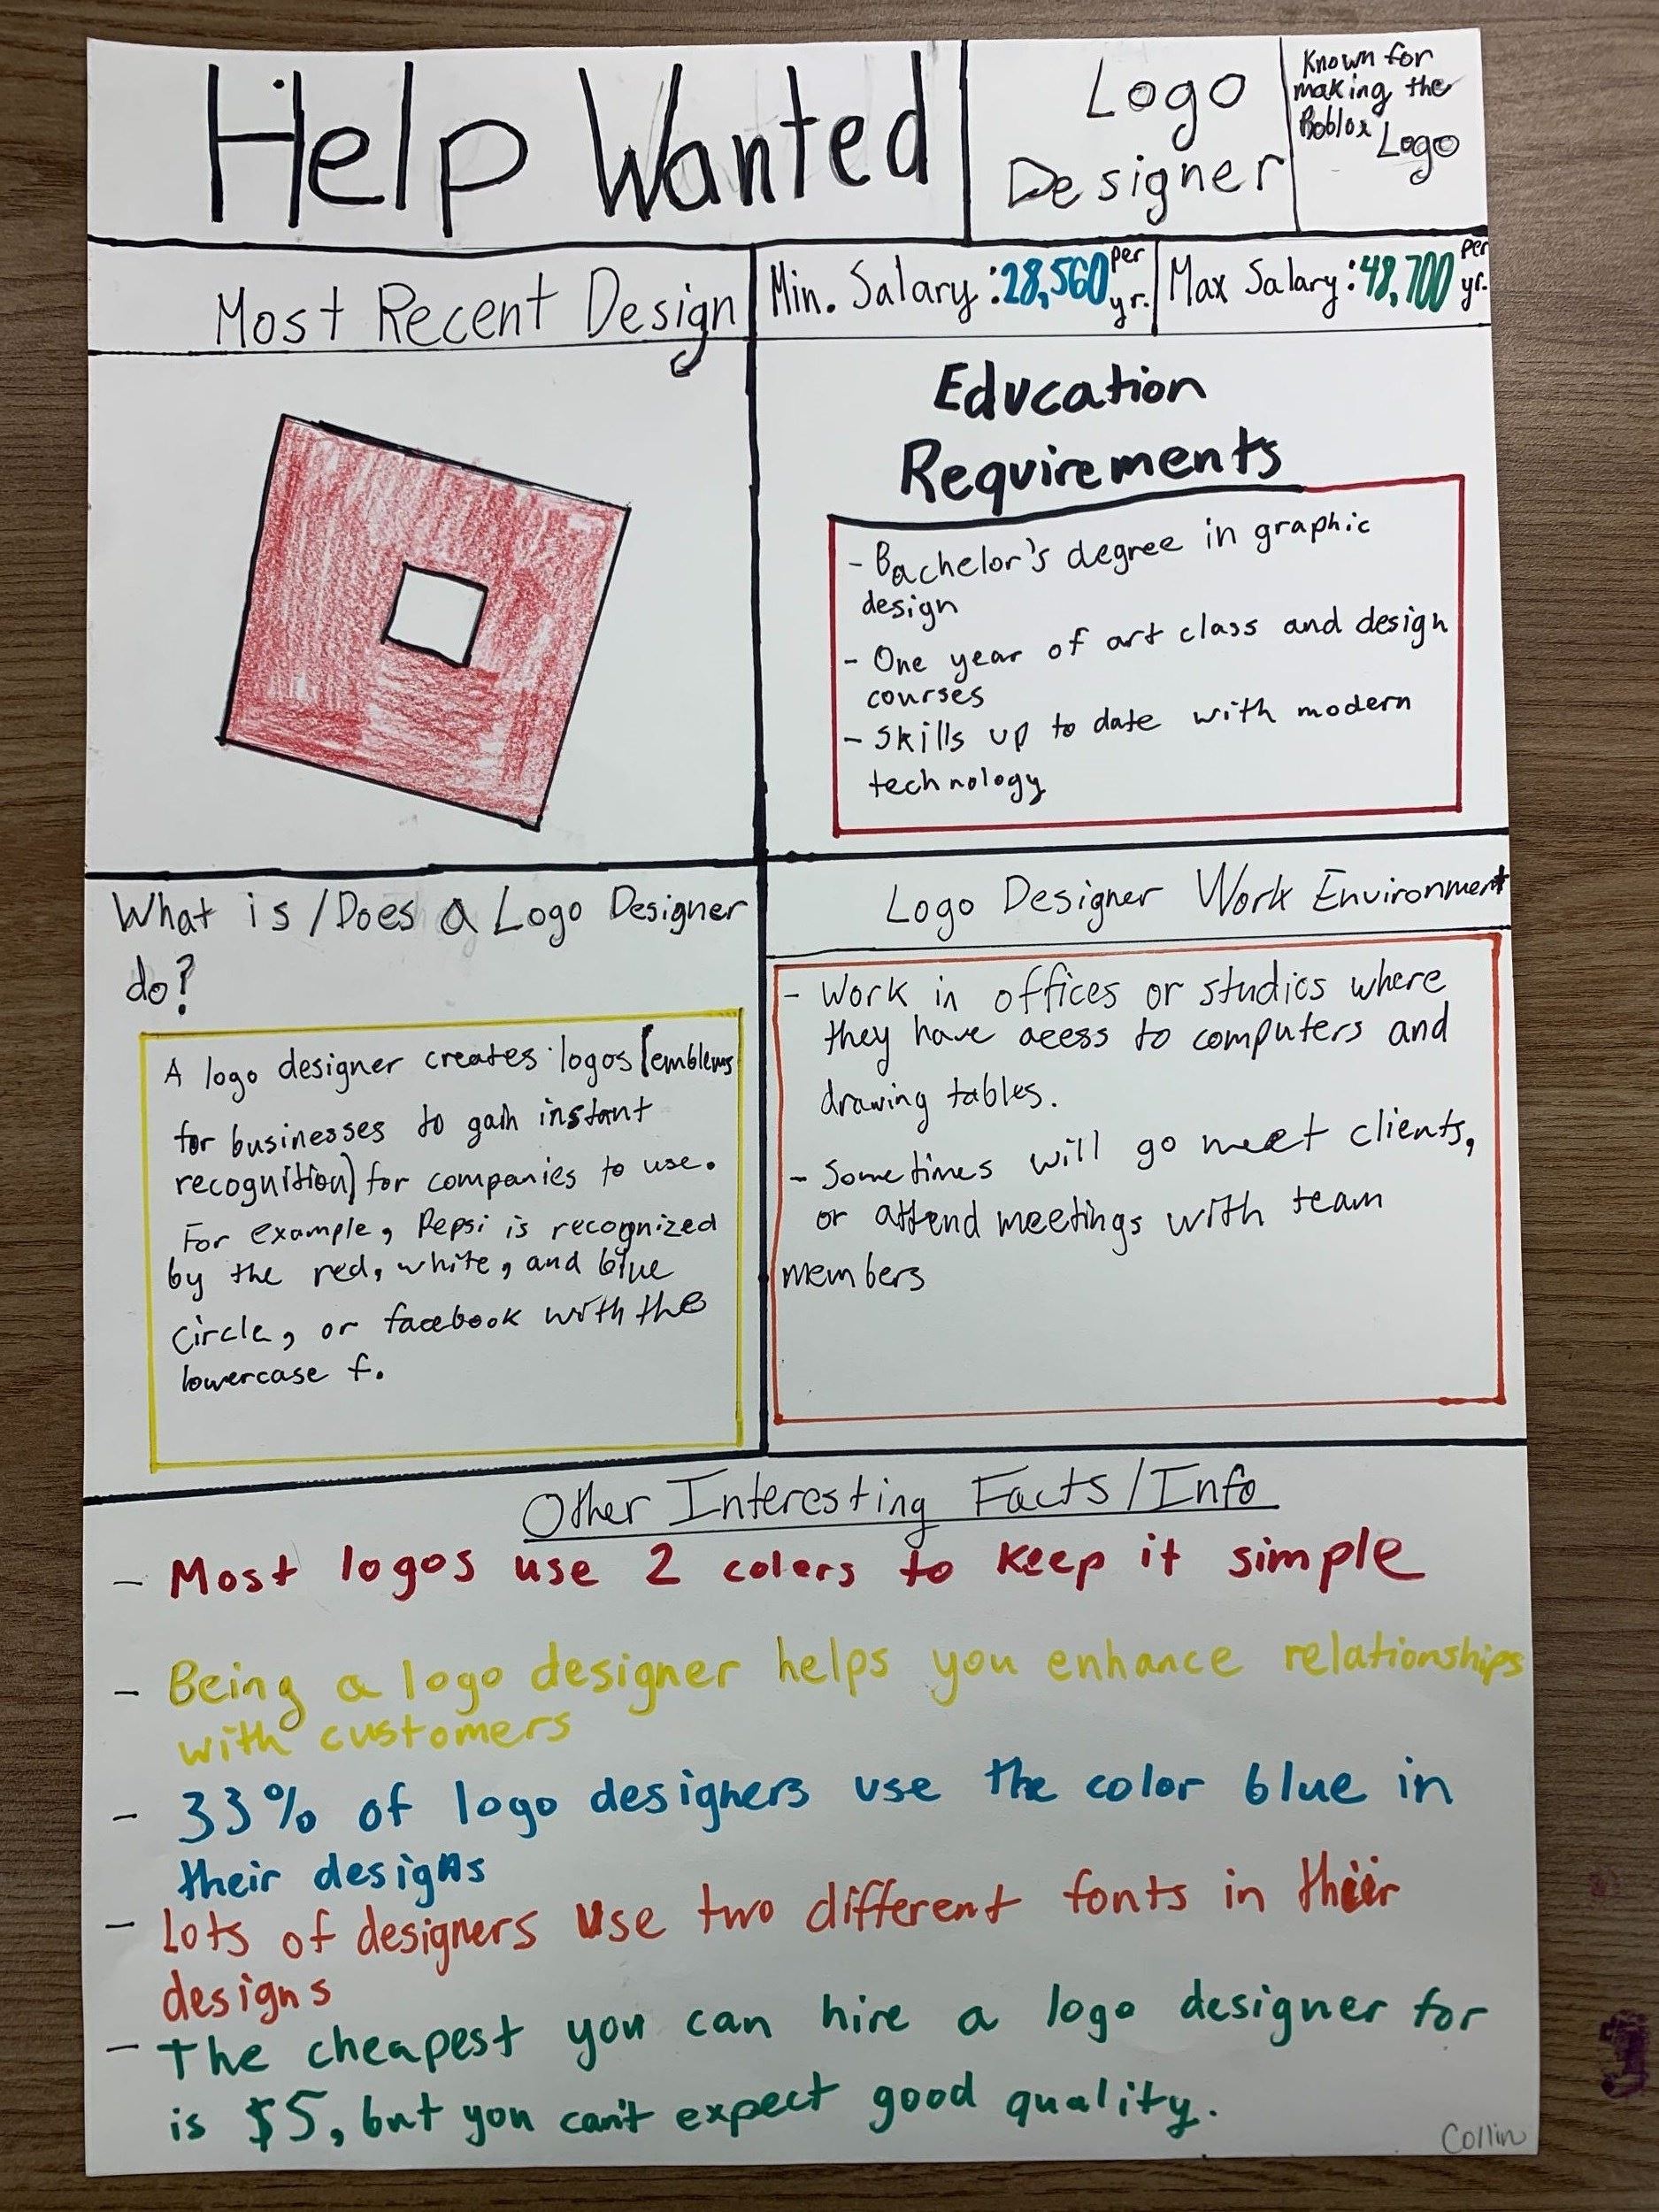 Help Wanted
Logo
Designer
Known for
making the
Roblox Logo
Most Recent Design
Min. Salary: 28,560 per yr.
Max Salary: 48,700 per yr.
Education
Requirements
- Bachelor's degree in graphic
design
- One year of art class and design
courses
- Skills up to date with modern
technology
What is/Does a Logo Designer
do?
A logo designer creates logos (emblems
for businesses to gain instant
recognition) for companies to use.
For example, Pepsi is recognized
by the red, white, and blue
circle, or facebook with the
lowercase f.
Logo Designer Work Environment
- Work in offices or studios where
they have acess to computers and
drawing tables.
- Sometimes will go meet clients,
or attend meetings with team
members
Other Interesting Facts/Info
- Most logos use 2 colors to keep it simple
- Being a logo designer helps you enhance relationships
with customers
- 33% of logo designers use the color blue in
their designs
- Lots of designers use two different fonts in their
designs
- The cheapest you can hire a logo designer for
is $5, but you can't expect good quality.
Collin